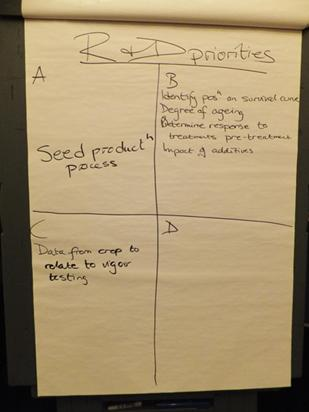 R & D priorities
A
Seed productn
process
B
Identify posn on survival curve
Degree of ageing
Determine response to
treatments pre-treatment
Impact of additives
C
Data from crop to
relate to vigour
testing
D